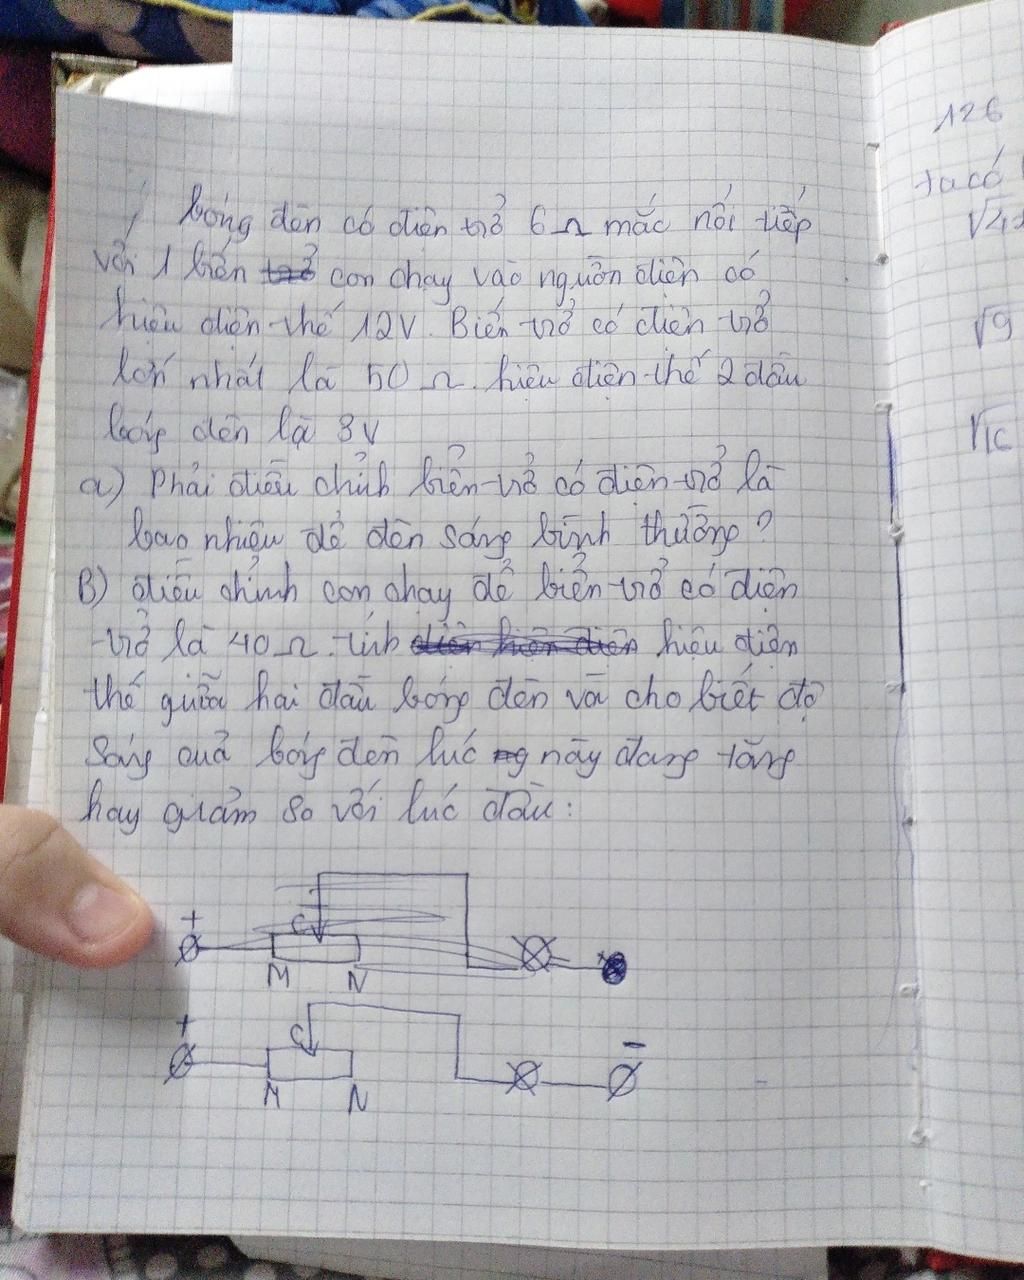 1 bóng đèn có điện trở 6Ω mắc nối tiếp
với 1 biến trở con chạy vào nguồn điện có
hiệu điện thế 12V. Biến trở có điện trở
lớn nhất là 50 Ω. hiệu điện thế 2 đầu
bóng đèn là 3V
a) Phải điều chỉnh biến trở có điện trở là
bao nhiêu để đèn sáng bình thường?
B) điều chỉnh con chạy để biến trở có điện
trở là 40Ω. tính hiệu điện
thế giữa hai đầu bóng đèn và cho biết độ
sáng quả bóng đèn lúc này đang tăng
hay giảm so với lúc đầu:
+
C
M N
+
C
-
M N
126
ta có
√9